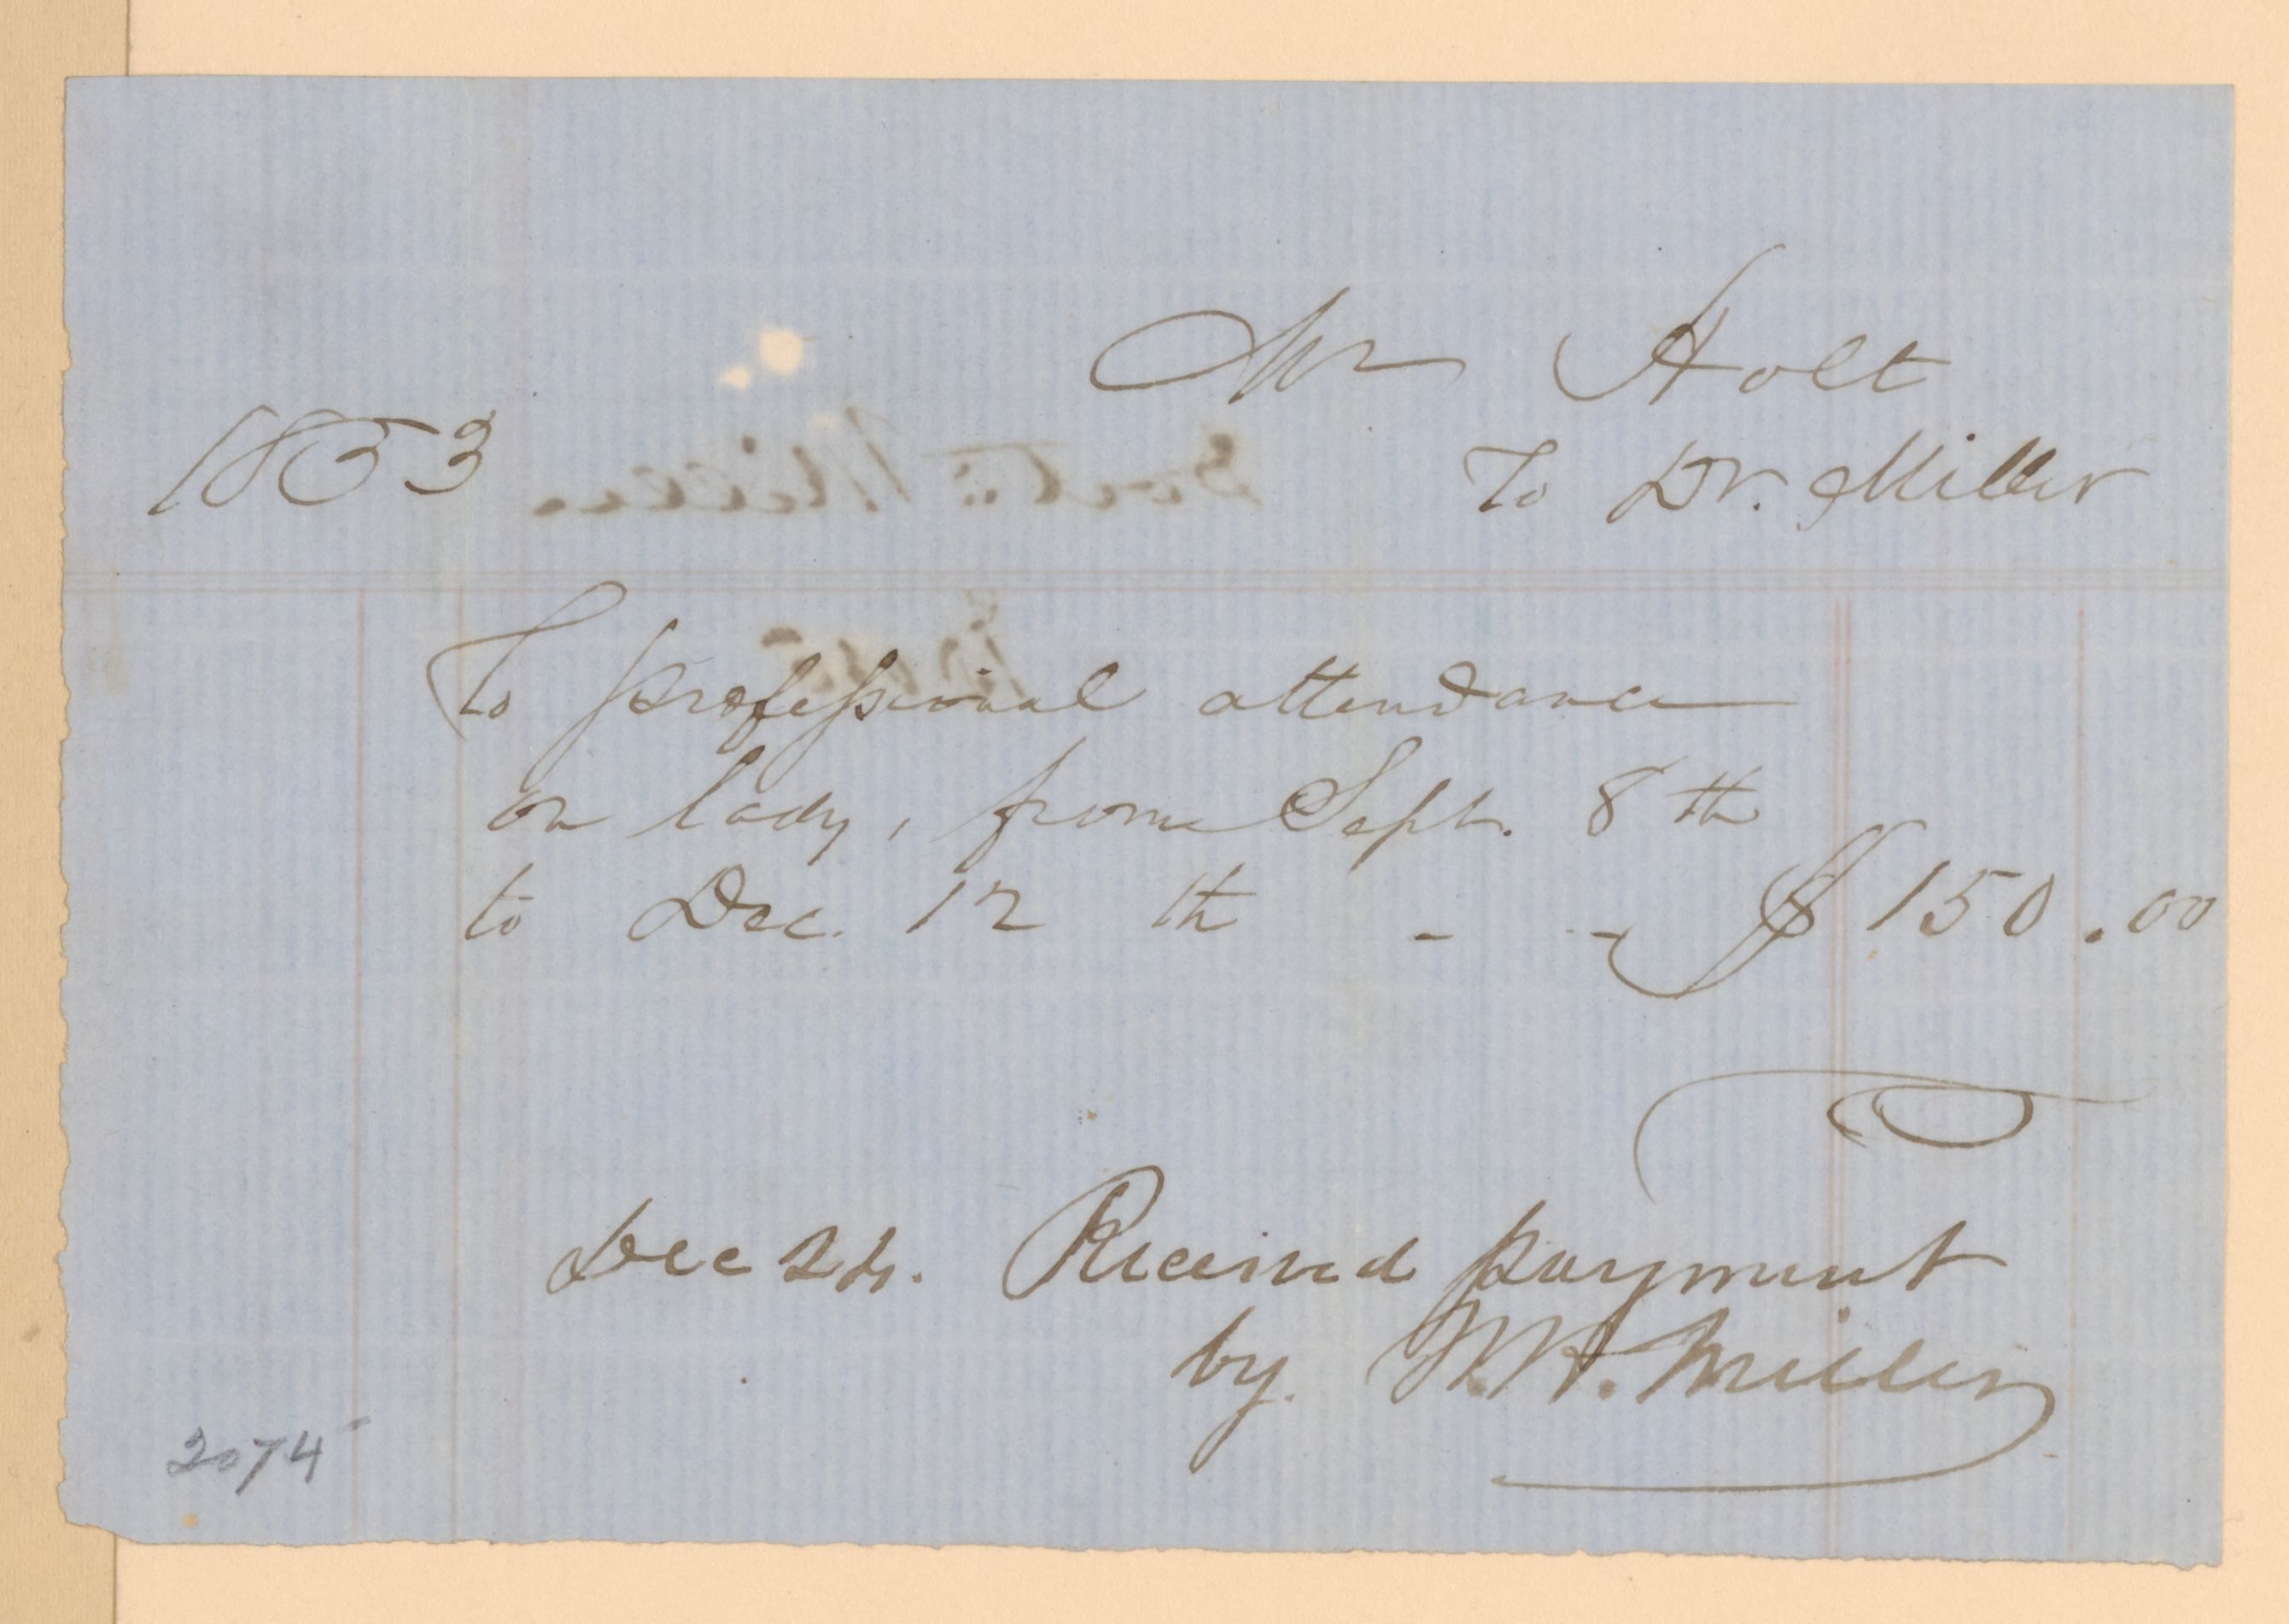 Mr Holt
1853 To Dr. Miller
To professional attendance
on lady, from Sept. 8th
to Dec. 12th - - $150.00
Dec 24. Received payment
by. W. H. Miller
2074